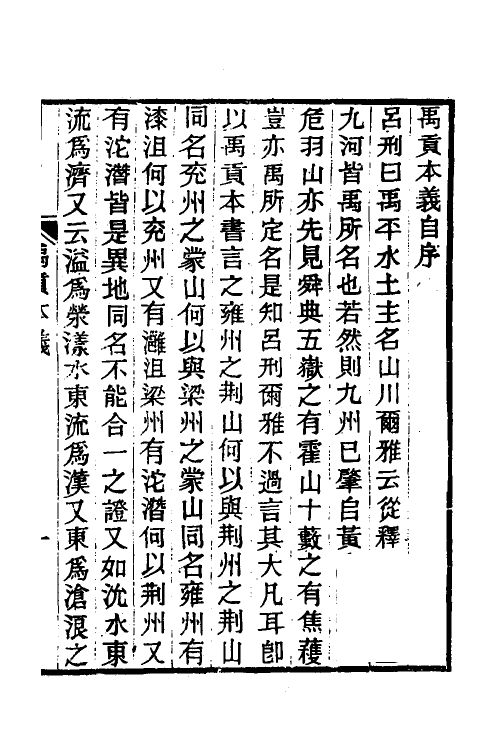 禹貢本義自序
呂刑曰禹平水土主名山川爾雅云從釋
九河皆禹所名也若然則九州已肇自黃
危羽山亦先見舜典五嶽之有霍山十藪之有焦穫
豈亦禹所定名是知呂刑爾雅不過言其大凡耳卽
以禹貢本書言之雍州之荆山何以與荆州之荆山
同名兖州之蒙山何以與梁州之蒙山同名雍州有
漆沮何以兖州又有灉沮梁州有沱潛何以荆州又
有沱潛皆是異地同名不能合一之證又如沇水東
流爲濟又云溢爲滎漾水東流爲漢又東爲滄浪之
禹貢本義
一